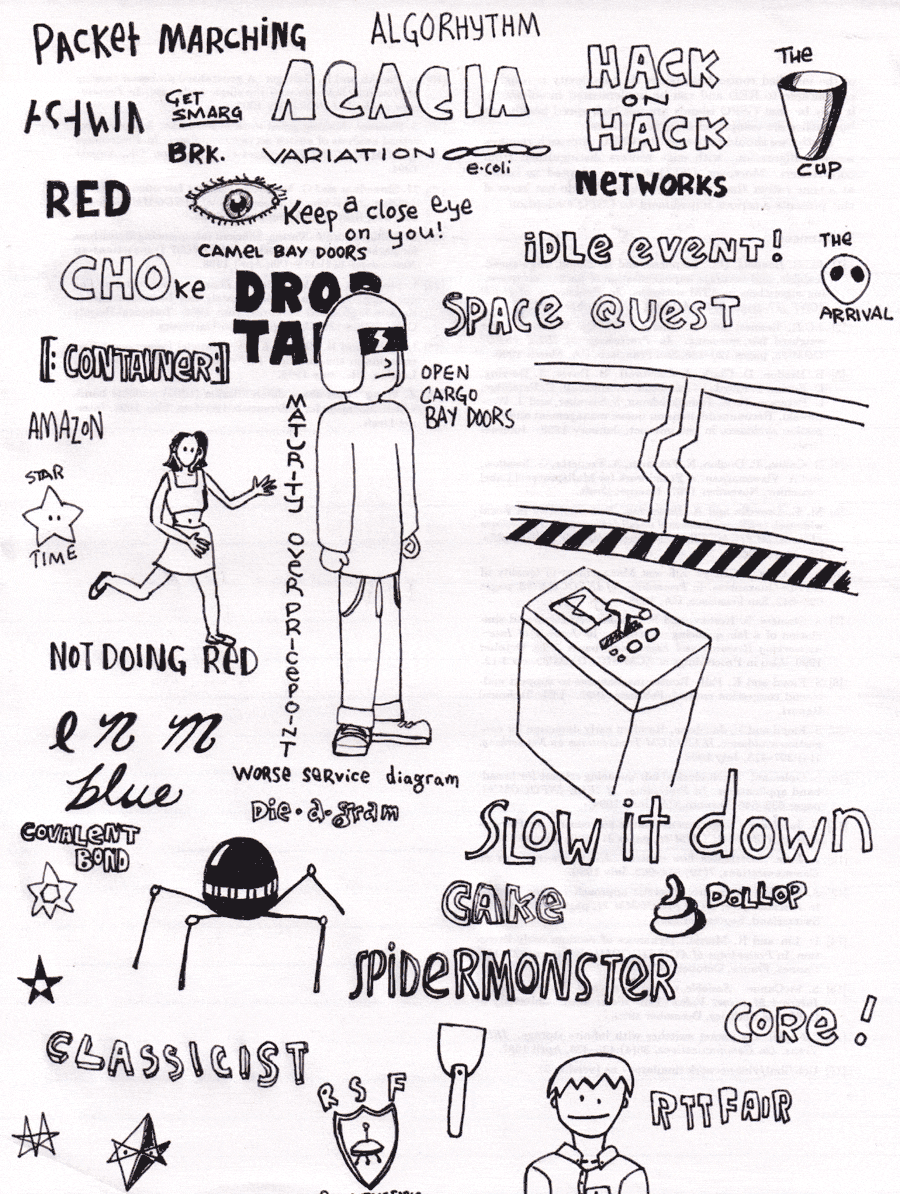 Packet Marching
ALGORHYTHM
ASHWIN
GET
SMARG
ACACIA
HACK
ON
HACK
The
CUP
BRK.
VARIATION
e·coli
NETWORKS
RED
Keep a close eye
on you!
CAMEL BAY DOORS
iDLE eVENT!
THE
ARRIVAL
CHOKe
DROP
TAI
SPACE QUEST
[:CONTAINER:]
OPEN
CARGO
BAY DOORS
AMAZON
MATURITY OVER PRICEPOINT
STAR
TIME
NOT DOING RED
e n m
blue
Worse service diagram
Die·a·gram
COVALENT
BOND
SLOW it down
CAKe
DOLLOP
SPIDERMONSTER
CORe!
CLASSICIST
RSF
RTTFAIR